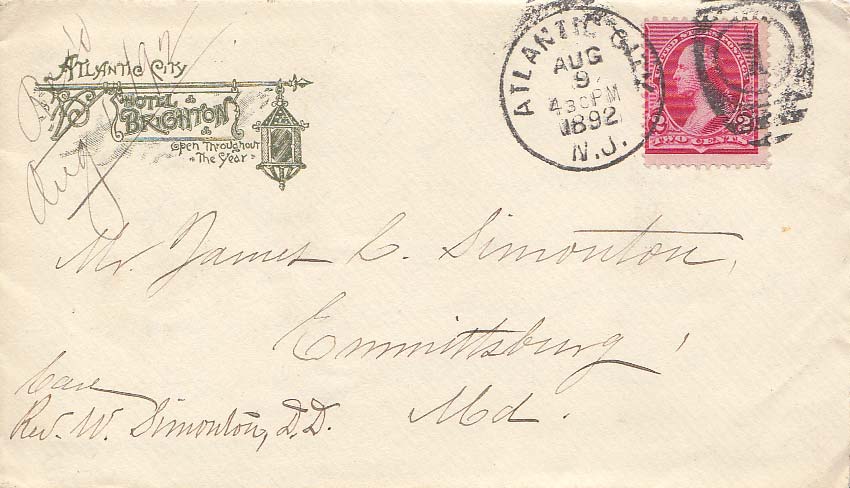 Atlantic City
Hotel
Brighton
Open Throughout
The Year
Aug
ATLANTIC CITY
AUG
9
430PM
1892
N.J.
UNITED STATES POSTAGE
2 2
TWO CENTS
Mr. James C. Simonton,
Emmittsburg,
Md.
Care
Rev. W. Simonton, D.D.